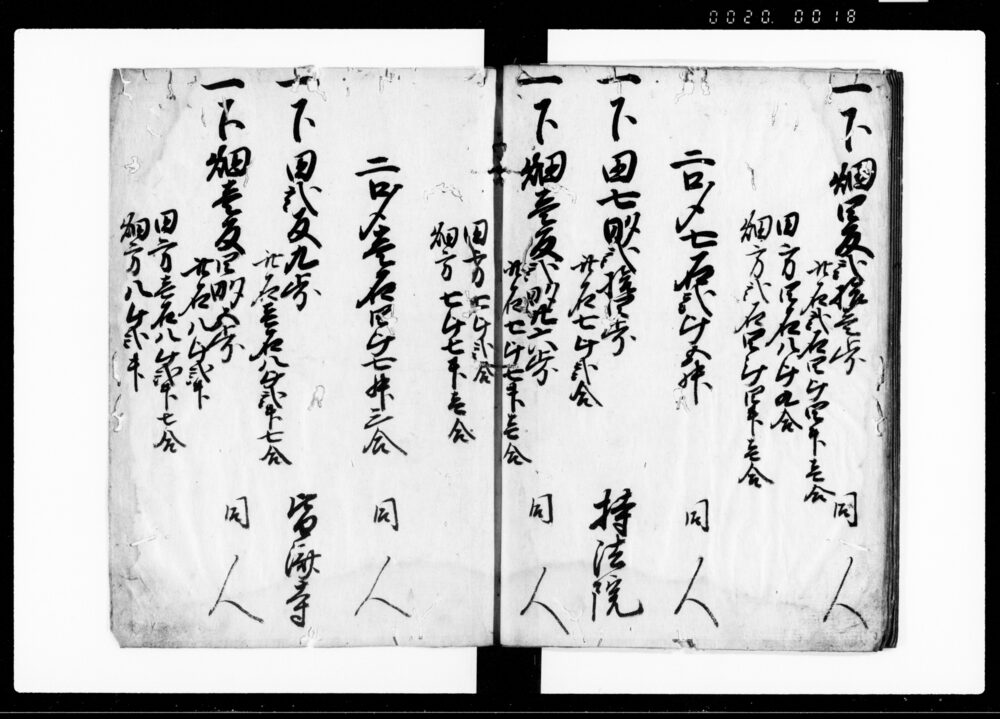 一下畑四反弐拾壱歩
此石弐石四斗四升壱合 同人
田方四石八斗九合
畑方弐石四斗四升壱合
二口〆七石弐斗五升 同人
一下田七畝弐拾歩 持法院
此石七斗弐合
一下畑壱反弐畝廿六歩 同人
此石七斗七升壱合
田方七斗弐合
畑方七斗七升壱合
二口〆壱石四斗七升三合 同人
一下田弐反九歩
此石壱石八斗弐升七合
一下畑壱反四畝五歩 同人
此石八斗弐升
田方壱石八斗弐升七合
畑方八斗弐升
0020.0018